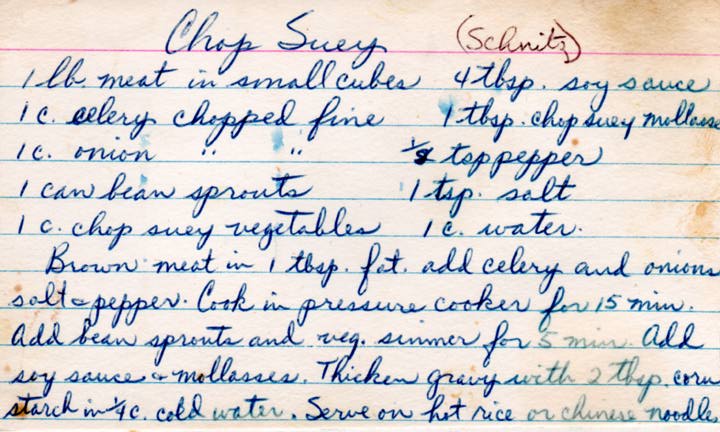 Chop Suey (Schnitz)
1 lb. meat in small cubes 4 tbsp. soy sauce
1 c. celery chopped fine 1 tbsp. chop suey mollasse
1 c. onion " " 1/8 tsp pepper
1 can bean sprouts 1 tsp. salt
1 c. chop suey vegetables 1 c. water.
Brown meat in 1 tbsp. fat. add celery and onions
salt & pepper. Cook in pressure cooker for 15 min.
Add bean sprouts and veg. simmer for 5 min. Add
soy sauce & mollasses. Thicken gravy with 2 tbsp. corn
starch in 1/4 c. cold water. Serve on hot rice or chinese noodle